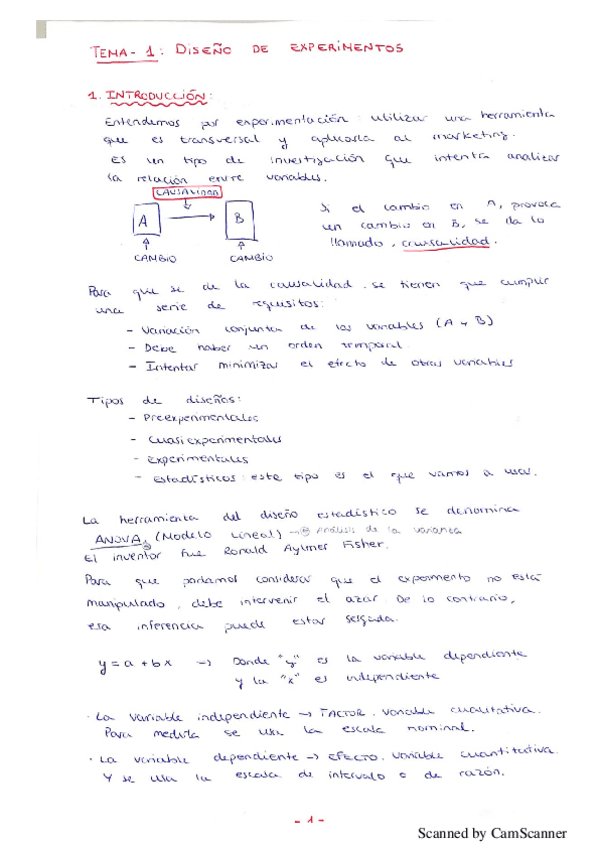 TEMA-1: DISEÑO DE EXPERIMENTOS
1. INTRODUCCIÓN:
Entendemos por experimentación: utilizar una herramienta
que es transversal y aplicarla al marketing.
Es un tipo de investigación que intenta analizar
la relación entre variables.
CAUSALIDAD
A
B
CAMBIO
CAMBIO
Si el cambio en A, provoca
un cambio en B, se da lo
llamado, causalidad.
Para que se de la causalidad se tienen que cumplir
una serie de requisitos:
- Variación conjunta de las variables (A y B)
- Debe haber un orden temporal.
- Intentar minimizar el efecto de otras variables
Tipos de diseños:
- Preexperimentales
- Cuasiexperimentales
- Experimentales
- Estadísticos: este tipo es el que vamos a usar.
La herramienta del diseño estadístico se denomina
ANOVA, (Modelo Lineal) → Análisis de la varianza
El inventor fue Ronald Aylmer Fisher.
Para que podamos considerar que el experimento no está
manipulado, debe intervenir el azar. De lo contrario,
esa inferencia puede estar sesgada.
y = a + bx → Donde "y" es la variable dependiente
y la "x" es independiente
· La variable independiente → FACTOR. variable cualitativa.
Para medirla se usa la escala nominal.
· La variable dependiente → EFECTO. variable cuantitativa.
Y se usa la escala de intervalo o de razón.
- 1 -
Scanned by CamScanner